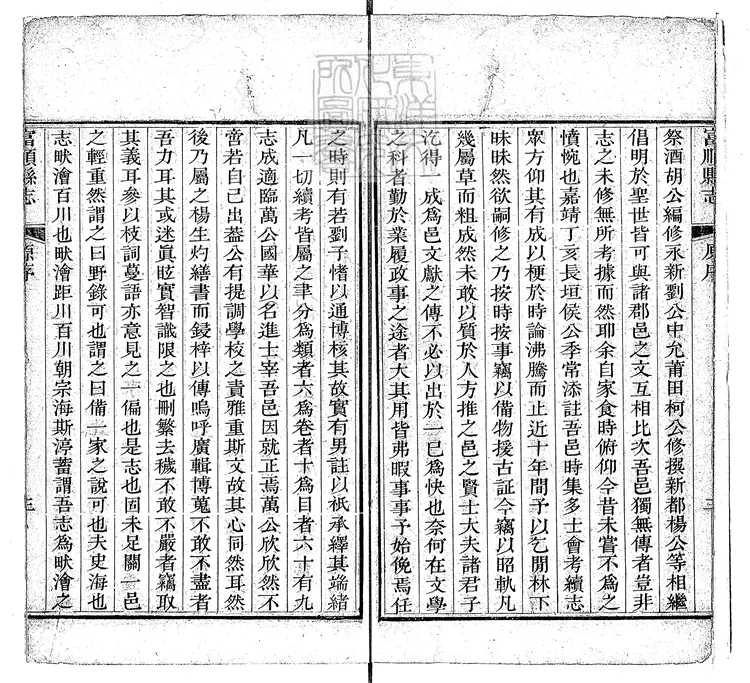 富順縣志
原序
祭酒胡公編修永新劉公中允莆田柯公修撰新都楊公等相繼
倡明於聖世皆可與諸郡邑之文互相比次吾邑獨無傳者豈非
志之未修無所考據而然耶余自家食時俯仰今昔未嘗不為之
憤惋也嘉靖丁亥長垣侯公季常添註吾邑時集多士會考續志
眾方仰其有成以梗於時論沸騰而止近十年間予以乞閒林下
昧昧然欲嗣修之乃按時按事竊以備物援古証今竊以昭軌凡
幾屬草而粗成然未敢以質於人方推之邑之賢士大夫諸君子
汔得一成為邑文獻之傳不必以出於一己為快也奈何在文學
之科者勤於業履政事之途者大其用皆弗暇事事予始俛焉任
之時則有若劉子愭以通博核其故實有男註以祇承繹其端緒
凡一切續考皆屬之聿分為類者六為卷者十為目者六十有九
志成適臨萬公國華以名進士宰吾邑因就正焉萬公欣欣然不
啻若自己出蓋公有提調學校之責雅重斯文故其心同然耳然
後乃屬之楊生灼繕書而鋟梓以傳嗚呼廣輯博蒐不敢不盡者
吾力耳其或迷眞眩實智識限之也刪繁去穢不敢不嚴者竊取
其義耳參以枝詞蔓語亦意見之一偏也是志也固未足關一邑
之輕重然謂之曰野錄可也謂之曰備一家之說可也夫史海也
志畎澮百川也畎澮距川百川朝宗海斯渟蓄謂吾志為畎澮之
富順縣志
原序
三